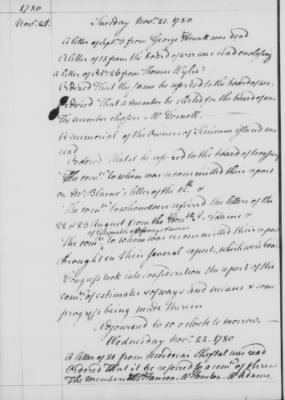 1780
Novr. 21.
Tuesday Novr. 21. 1780
A letter of Septr. 3 from George Howell was read
A letter of 18 from the board of war was read enclosing
a letter of Octr. 26 from Thomas Wylie
Ordered That the same be referred to the board of war
Ordered That a member be elected for the board of war
The member chosen Mr Cornell.
A memorial of the Owners of Tinicum Island was
read
Ordered That it be referred to the board of treasury
The comee. to whom was recommitted their report
on Mr Blaine's letter of the
The comee. to whom were referred the letters of the
22 & 23 August from the Honble J. Adams &
of estimates & of ways & means
The comee. to whom was recommitted their report
brought in their several reports, which were read
Congress took into consideration the report of the
comee. of estimates & of ways and means & some
progress being made therein
Adjourned to 10 o Clock to morrow.
Wednesday Novr. 22. 1780
A letter of 20 from Mordecai Sheftal was read
Ordered That it be referred to a comee. of three
The members Mr Hanson Mr Houston Mr Adams